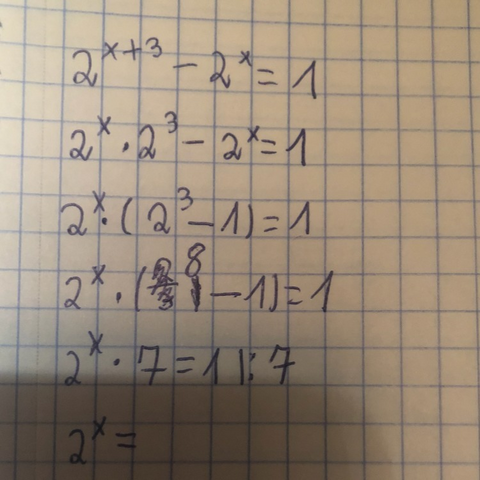 2^{x+3} - 2^x = 1
2^x · 2^3 - 2^x = 1
2^x · (2^3 - 1) = 1
2^x · (8 - 1) = 1
2^x · 7 = 1 |: 7
2^x =